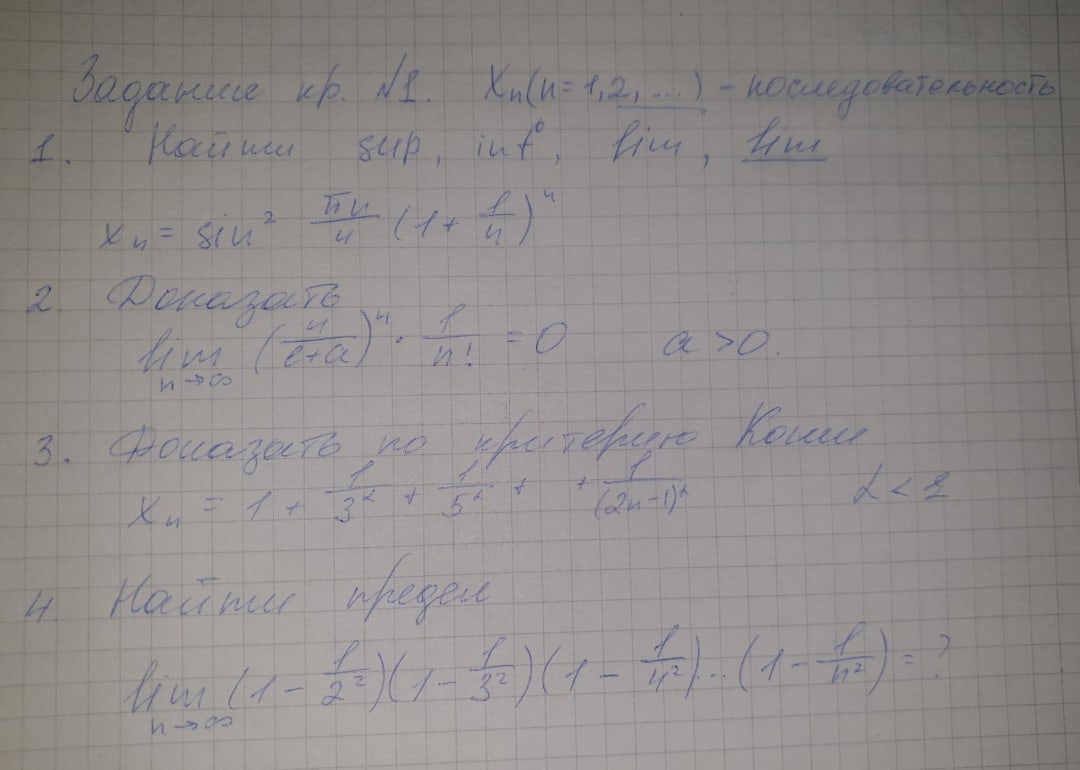 Задание кр. №1. Xₙ(n=1,2,...) - последовательность
1. Найти sup, inf, lim, lim
xₙ = sin² πn/4 (1+ 1/n)ⁿ
2. Доказать
lim n→∞ (n/(e+a))ⁿ · 1/n! = 0 a>0.
3. Доказать по критерию Коши
xₙ = 1 + 1/3^α + 1/5^α + + 1/(2n-1)^α α<1
4. Найти предел
lim n→∞ (1- 1/2²)(1- 1/3²)(1- 1/4²)...(1- 1/n²)=?